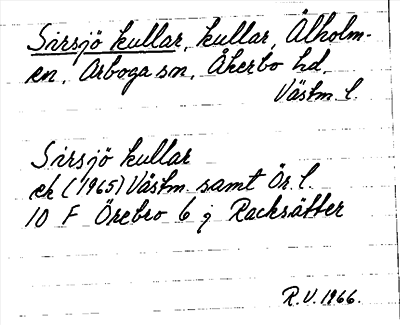 Sirsjö kullar, kullar, Älholm-
en, Arboga sn, Åkerbo hd,
Västm. l.
Sirsjö kullar
ek (1965) Västm. samt Ör. l.
10 F Örebro 6 j Racksätter
R.V. 1966.